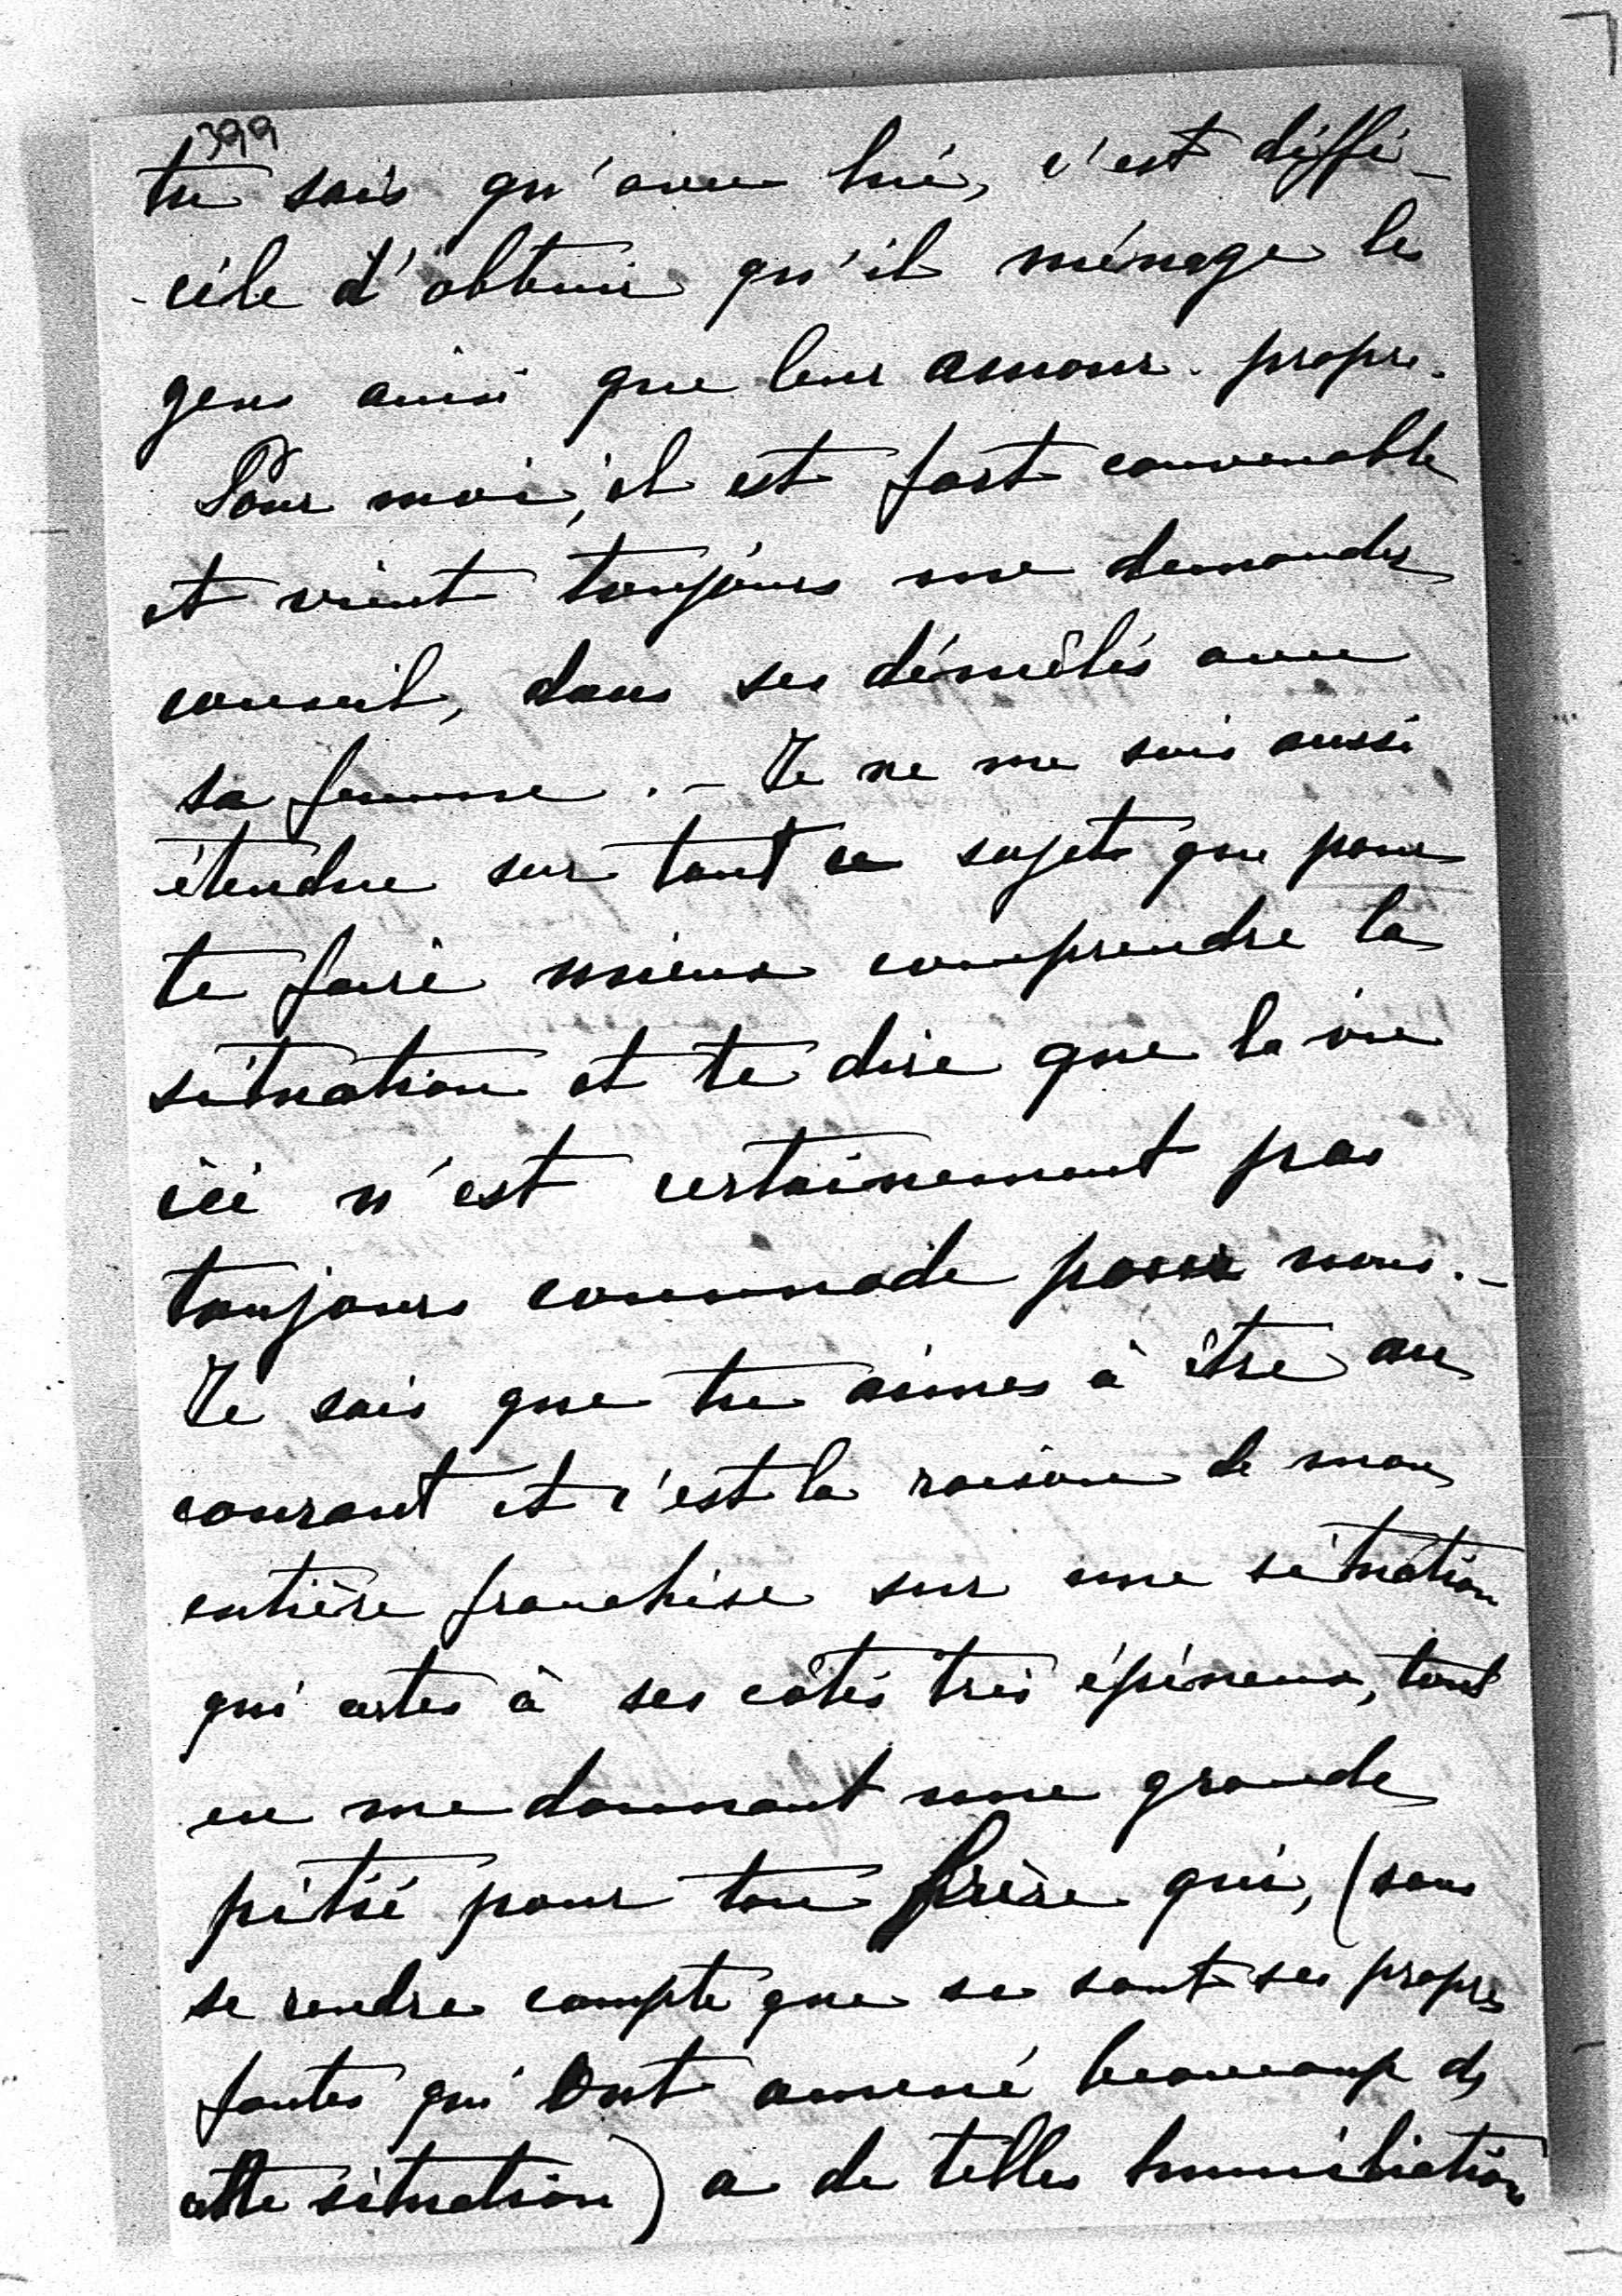 399
tu sais qu'avec lui, c'est diffi-
-cile d'obtenir qu'il ménage les
gens ainsi que leur amour-propre.
Pour moi, il est fort convenable
et vient toujours me demander
conseil, dans ses démêlés avec
sa femme. - Je ne me suis aussi
étendue sur tout ce sujet que pour
te faire mieux comprendre la
situation et te dire que la vie
ici n'est certainement pas
toujours commode pour nous. -
Je sais que tu aimes à être au
courant et c'est la raison de mon
entière franchise sur une situation
qui certes à ses côtés très épineux, tout
en me donnant une grande
pitié pour ton frère qui, (sans
se rendre compte que se sont ses propres
fautes qui ont amené beaucoup de
cette situation) a de telles humiliations